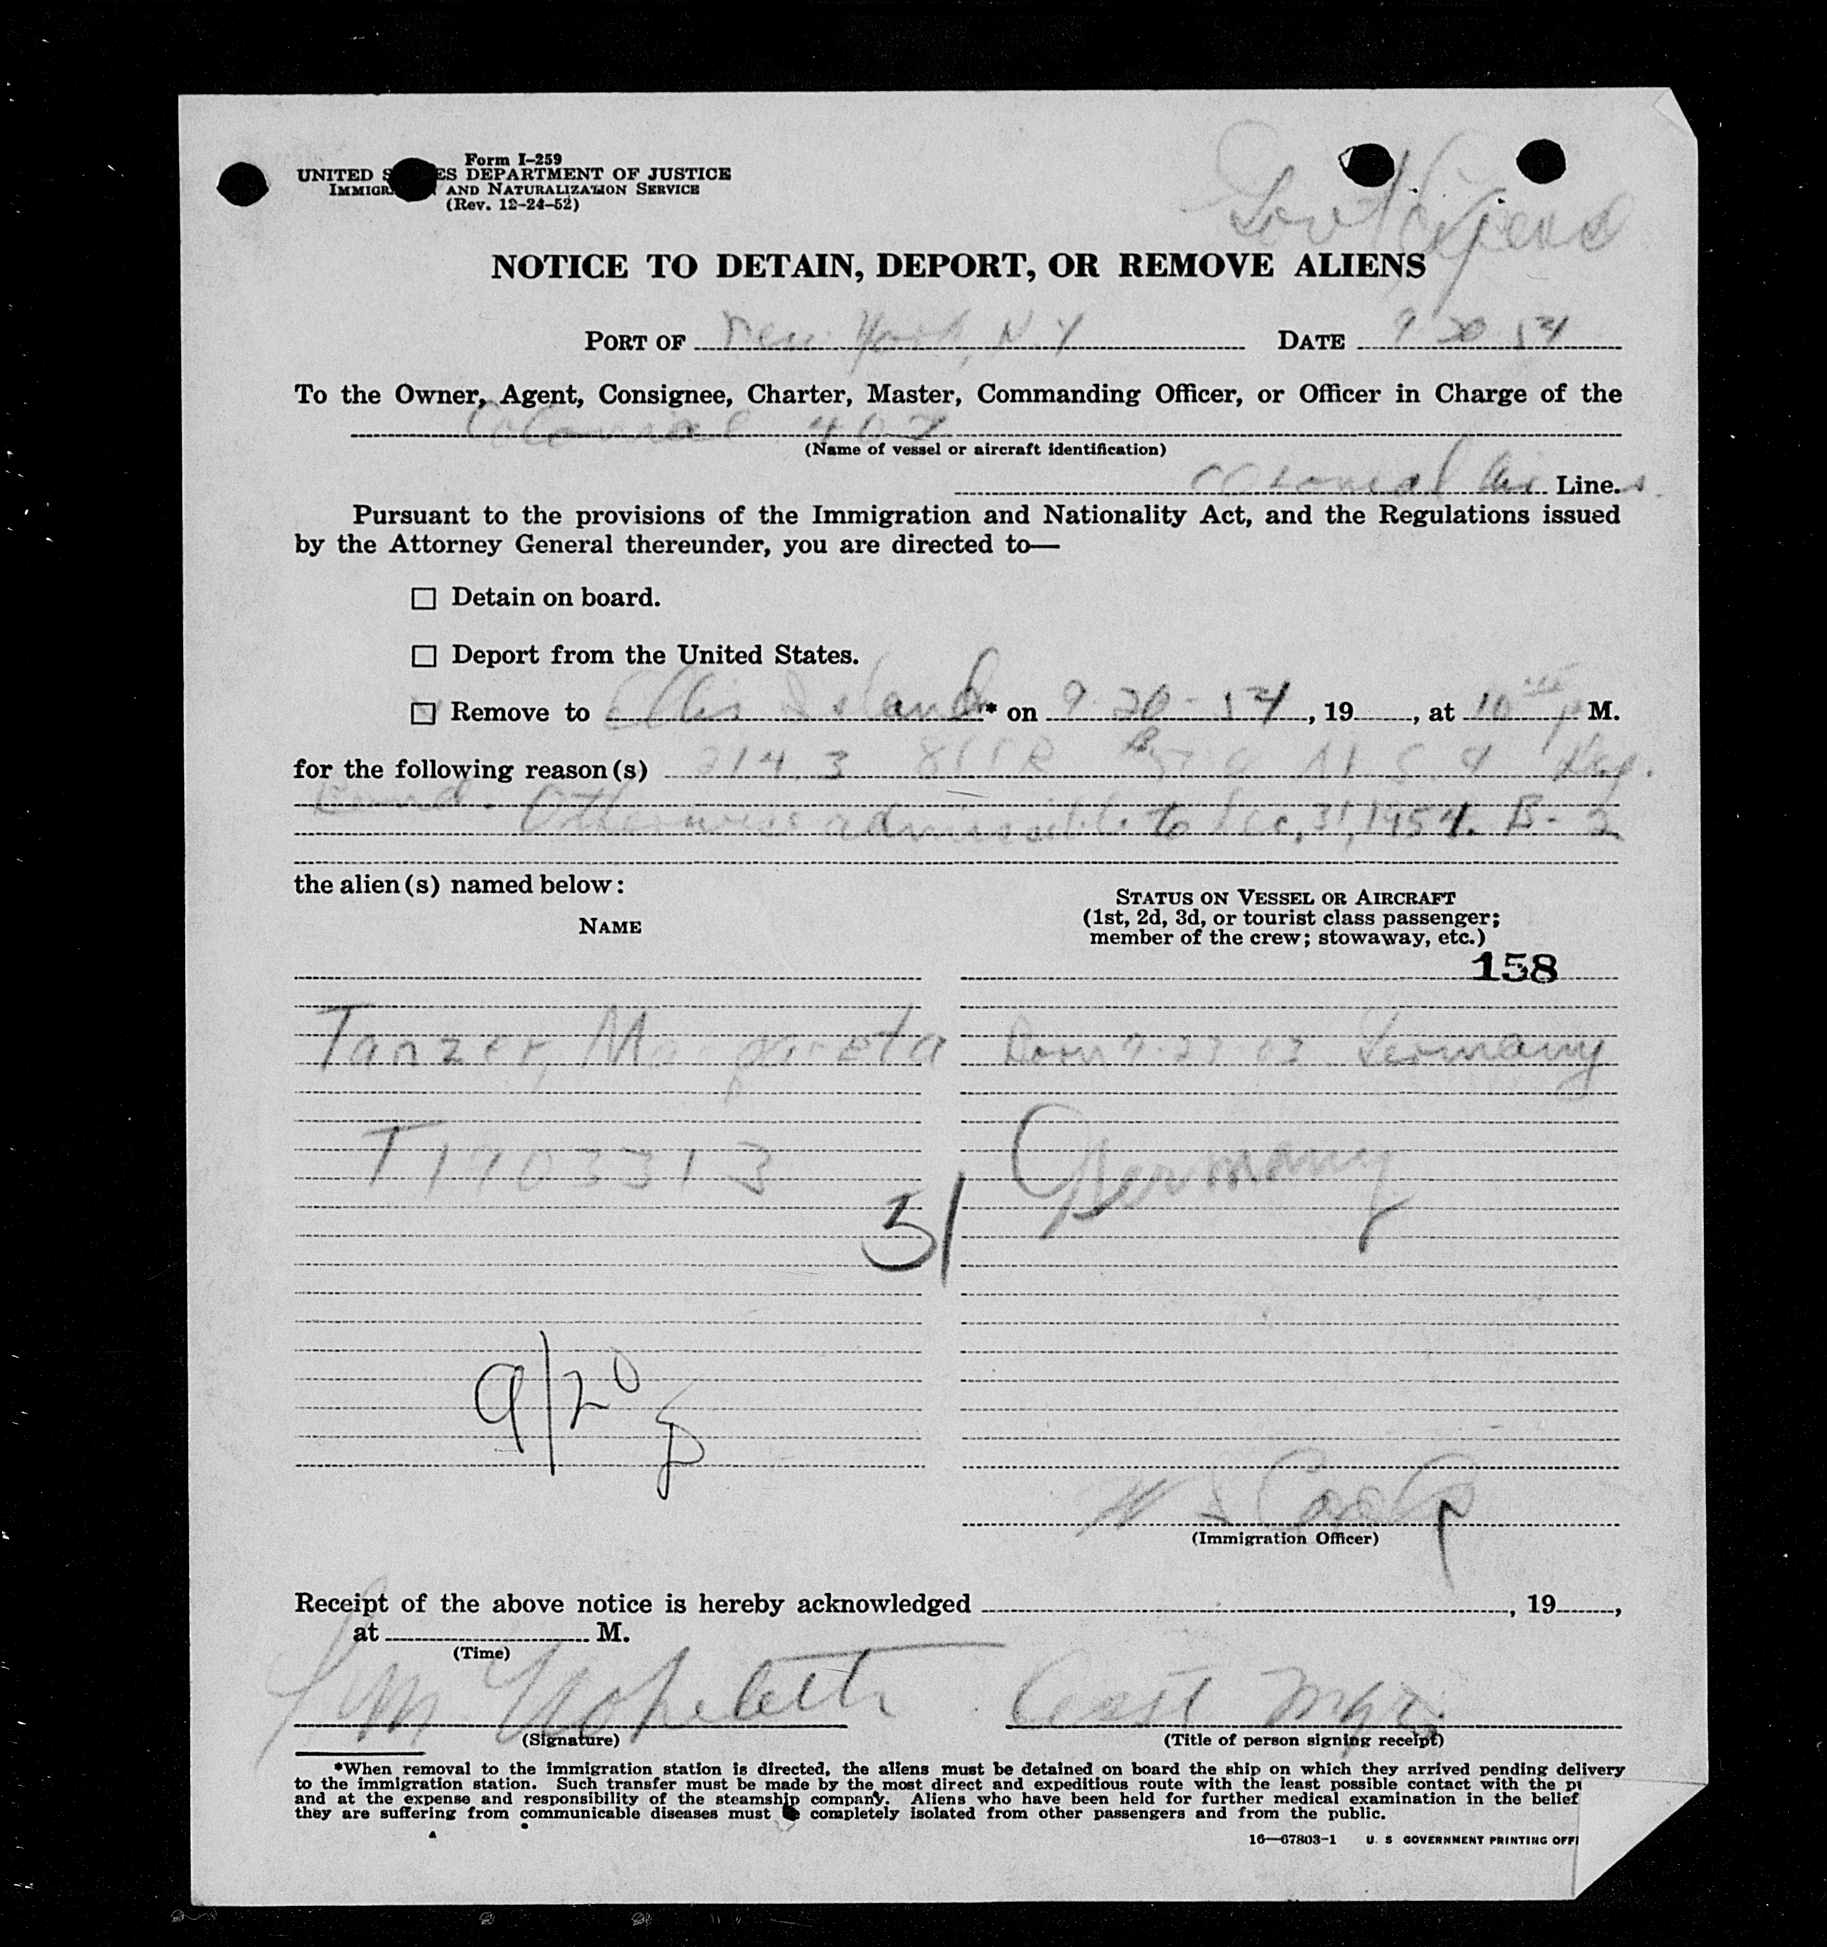 Form I-259
UNITED S ES DEPARTMENT OF JUSTICE
IMMIGR AND NATURALIZATION SERVICE
(Rev. 12-24-52)
Gov't Expense
NOTICE TO DETAIN, DEPORT, OR REMOVE ALIENS
PORT OF New York, N.Y DATE 9 20 54
To the Owner, Agent, Consignee, Charter, Master, Commanding Officer, or Officer in Charge of the
Colonial 407
(Name of vessel or aircraft identification)
Colonial Air Line.s
Pursuant to the provisions of the Immigration and Nationality Act, and the Regulations issued
by the Attorney General thereunder, you are directed to—
Detain on board.
Deport from the United States.
Remove to Ellis Island * on 9-20-54, 19 , at 10 P M.
for the following reason(s) 214.3 8CFR
Bond. Otherwise admissible to Dec. 31, 1954. B-2
the alien(s) named below:
NAME
STATUS ON VESSEL OR AIRCRAFT
(1st, 2d, 3d, or tourist class passenger;
member of the crew; stowaway, etc.)
158
Tanzer, Margareta Born 9-27-03 Germany
T1703313 Germany
31
9/20
(Immigration Officer)
Receipt of the above notice is hereby acknowledged , 19 ,
at M.
(Time)
Asst Mgr.
(Signature) (Title of person signing receipt)
*When removal to the immigration station is directed, the aliens must be detained on board the ship on which they arrived pending delivery
to the immigration station. Such transfer must be made by the most direct and expeditious route with the least possible contact with the pu
and at the expense and responsibility of the steamship company. Aliens who have been held for further medical examination in the belief
they are suffering from communicable diseases must be completely isolated from other passengers and from the public.
16—67803-1 U. S GOVERNMENT PRINTING OFFI